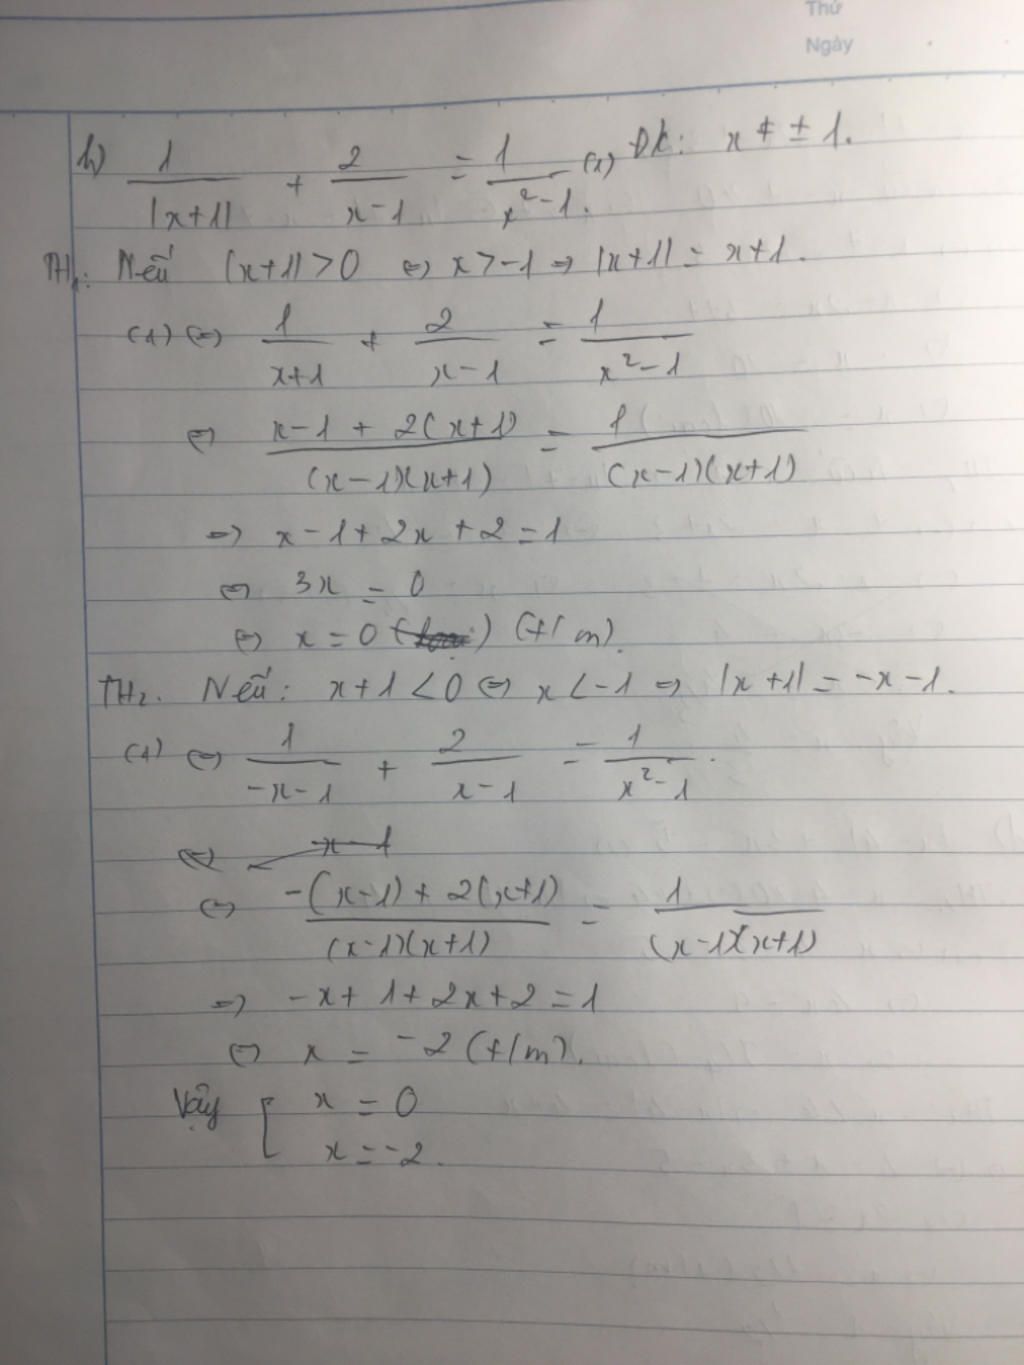 Thứ
Ngày
h) 1/|x+1| + 2/x-1 = 1/x²-1. (1) ĐK: x ≠ ± 1.
TH₁: Nếu |x+1| > 0 ⇔ x > -1 ⇒ |x+1| = x+1.
(1) ⇔ 1/x+1 + 2/x-1 = 1/x²-1
⇔ x-1 + 2(x+1)/(x-1)(x+1) = 1/(x-1)(x+1)
⇒ x-1+2x+2=1
⇔ 3x = 0
⇔ x = 0 (loại) (t/m).
TH₂. Nếu: x+1 < 0 ⇔ x < -1 ⇒ |x+1| = -x-1.
(1) ⇔ 1/-x-1 + 2/x-1 = 1/x²-1.
⇔ x-1
⇔ -(x-1)+2(x+1)/(x-1)(x+1) = 1/(x-1)(x+1)
⇒ -x+1+2x+2=1
⇔ x = -2 (t/m).
Vậy [ x = 0
x = -2.